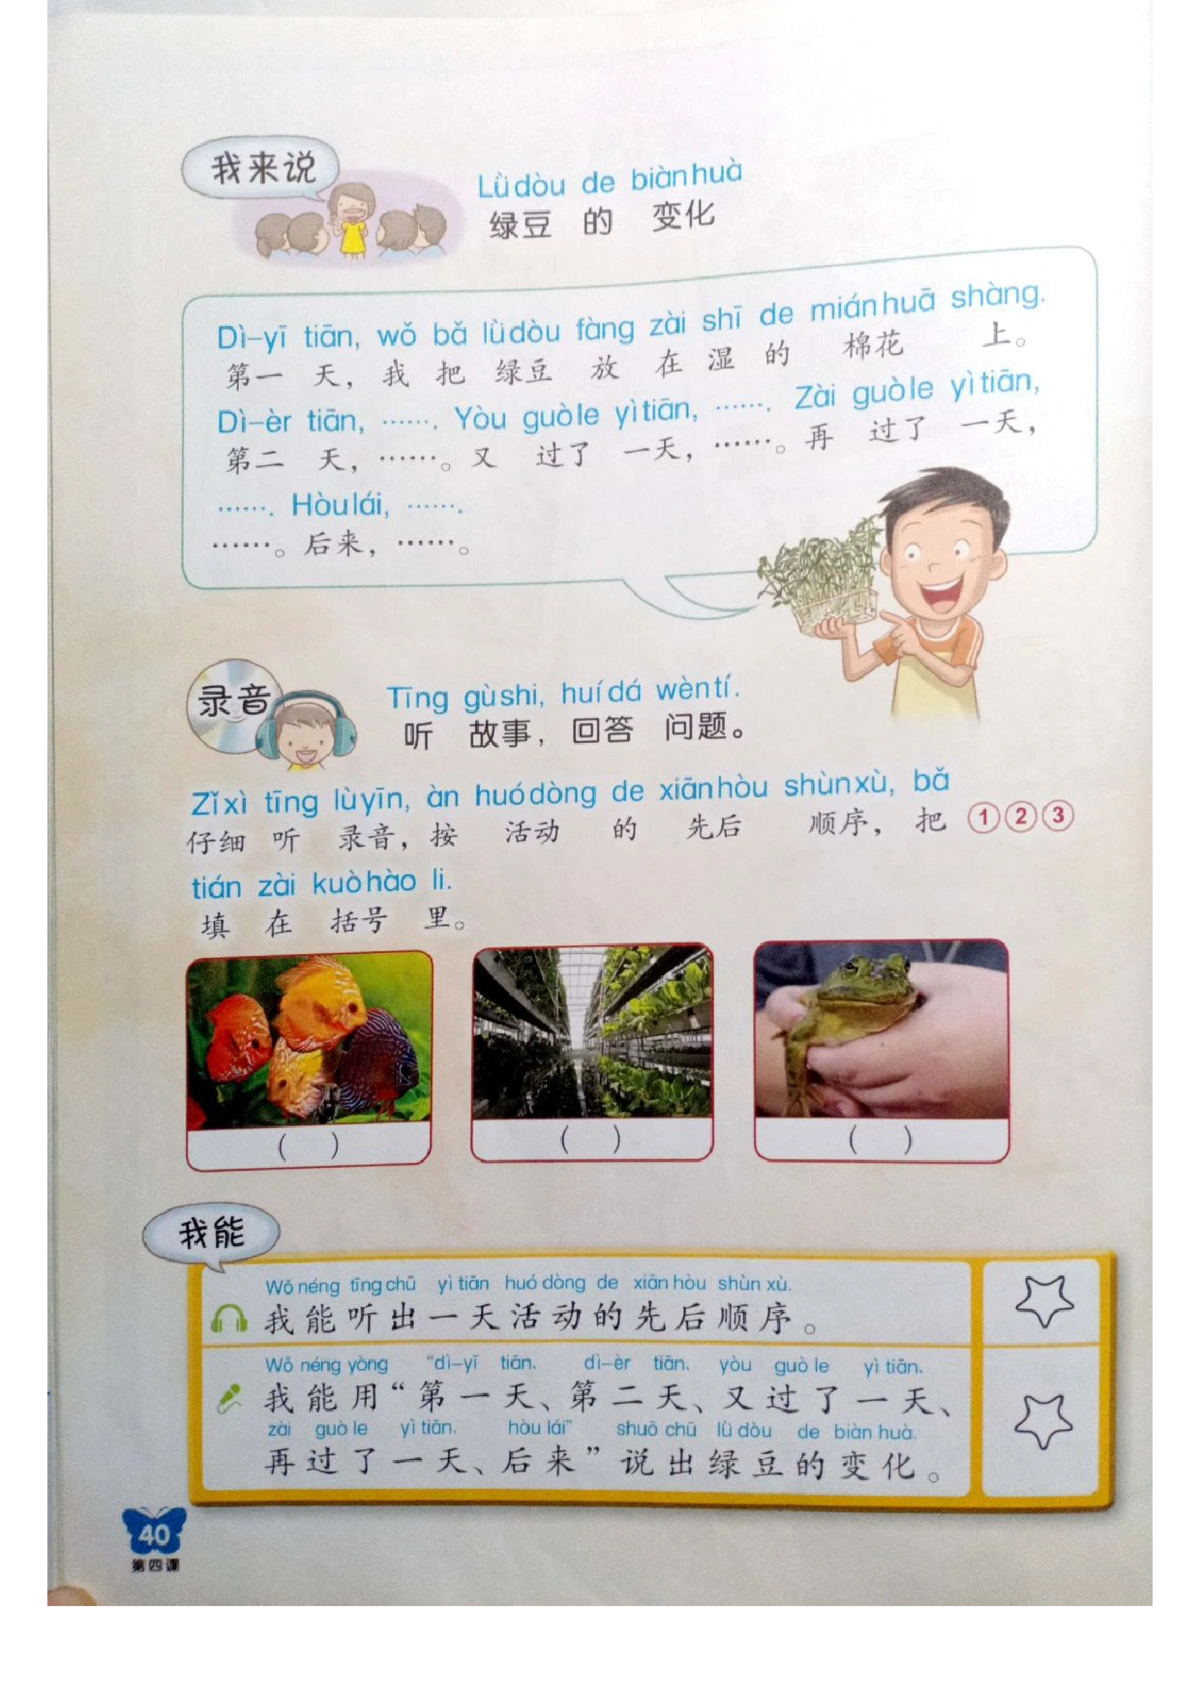 我来说
Lǜdòu de biànhuà
绿豆 的 变化
Dì-yī tiān, wǒ bǎ lǜdòu fàng zài shī de miánhuā shàng.
第一 天，我 把 绿豆 放 在 湿 的 棉花 上。
Dì-èr tiān, ……. Yòu guòle yìtiān, ……. Zài guòle yìtiān,
第二 天，……。又 过了 一天，……。再 过了 一天，
……. Hòulái, …….
……。后来，……。
录音
Tīng gùshi, huídá wèntí.
听 故事，回答 问题。
Zǐxì tīng lùyīn, àn huódòng de xiānhòu shùnxù, bǎ
仔细 听 录音，按 活动 的 先后 顺序，把 ①②③
tián zài kuòhào li.
填 在 括号 里。
( ) ( ) ( )
我能
Wǒ néng tīng chū yì tiān huó dòng de xiān hòu shùn xù.
我能听出一天活动的先后顺序。
Wǒ néng yòng “dì-yī tiān、 dì-èr tiān、 yòu guò le yì tiān、
我能用“第一天、第二天、又过了一天、
zài guò le yì tiān、 hòu lái” shuō chū lǜ dòu de biàn huà.
再过了一天、后来”说出绿豆的变化。
40
第四课